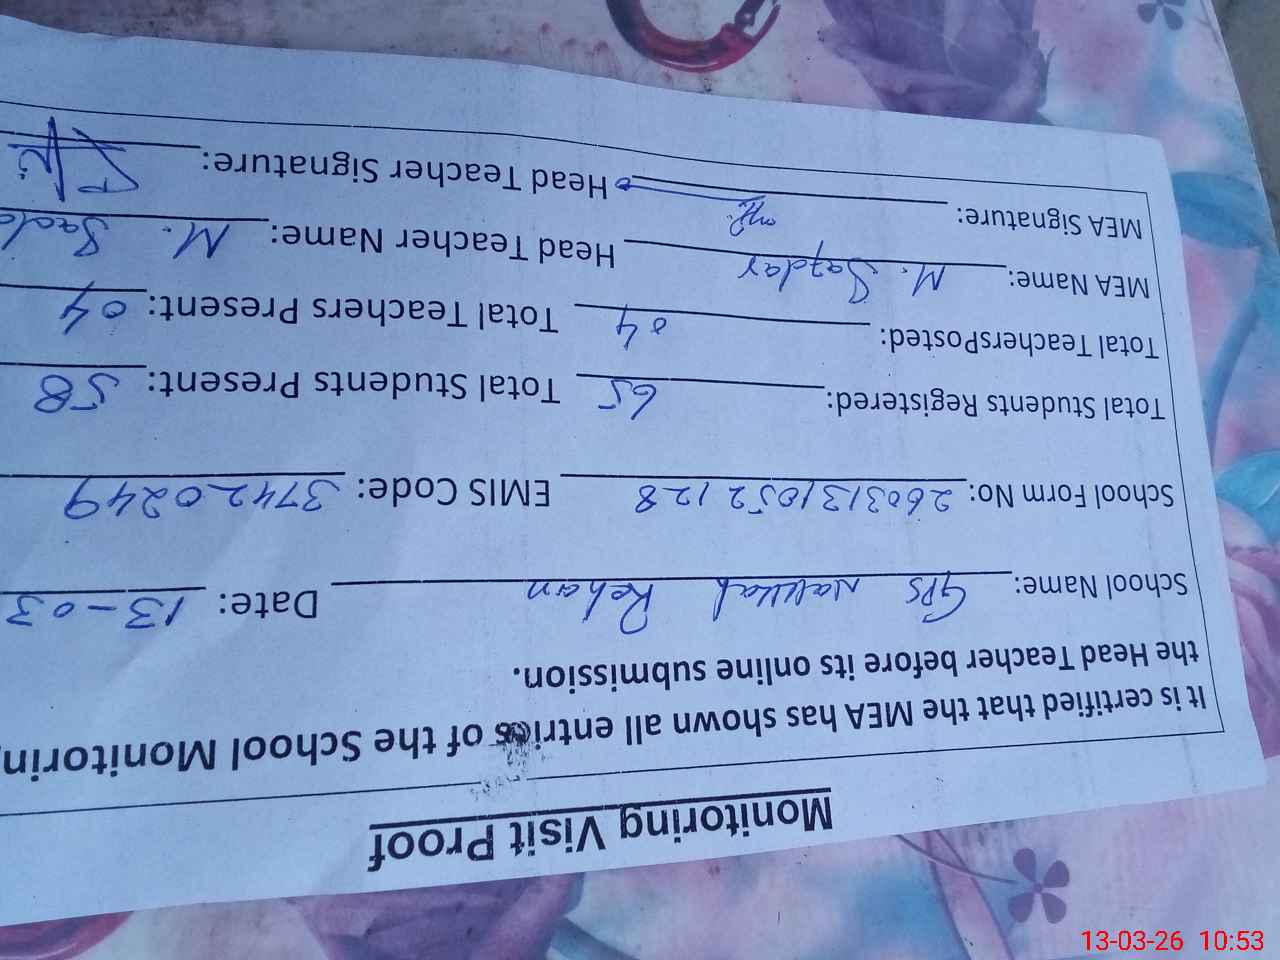 Monitoring Visit Proof
It is certified that the MEA has shown all entries of the School Monitorin
the Head Teacher before its online submission.
School Name: GPS Rehan Date: 13-03
School Form No: EMIS Code: 37420249
Total Students Registered: 65 Total Students Present: 58
Total TeachersPosted: 04 Total Teachers Present: 04
MEA Name: M. Safdar Head Teacher Name: M.
MEA Signature: Head Teacher Signature:
13-03-26 10:53